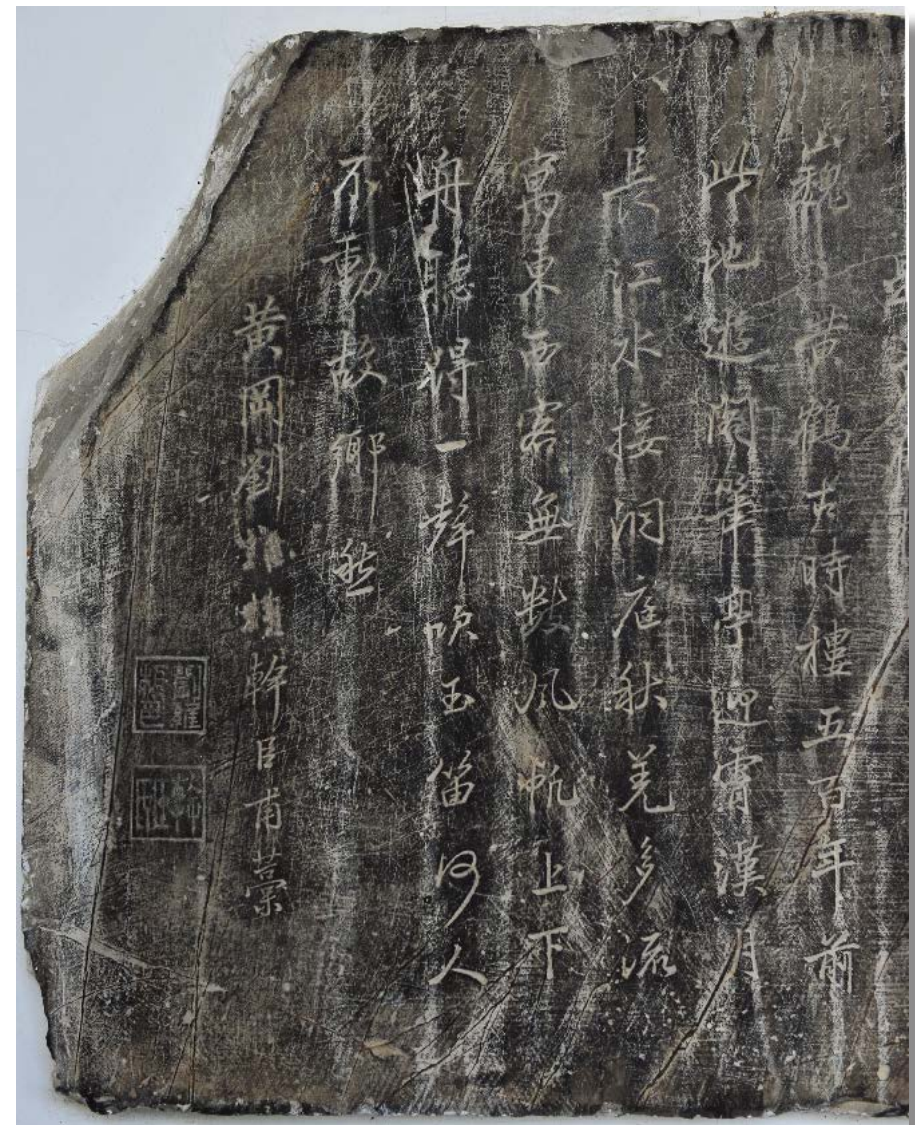 巍黄鶴古時樓五百年前
此地遊閣筆亭迎霄漢月
長江水接洞庭秋羌多流
寓東西客無數風帆上下
舟聽得一聲吹玉笛何人
不動故鄉愁
黄岡劉幹臣甫藁